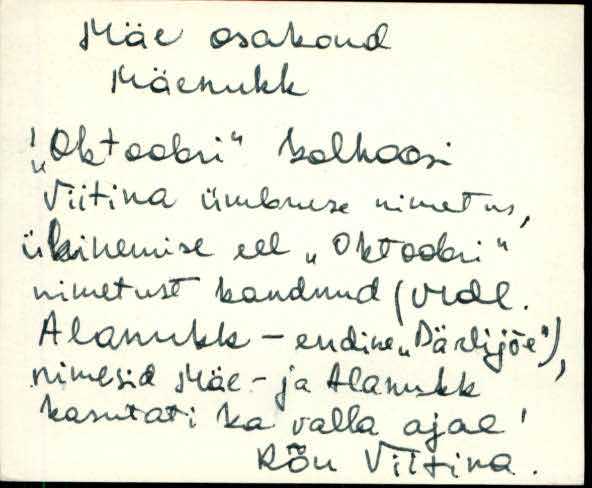 Mäe osakond
Mäenukk
"Oktoobri" kolhoosi
Viitina ümbruse nimetus,
ühinemise eel "Oktoobri"
nimetust kandnud (vrdl.
Alanukk - endine "Pärlijõe"),
nimesid Mäe- ja Alanukk
kasutati ka valla ajal!
Rõu Viitina.